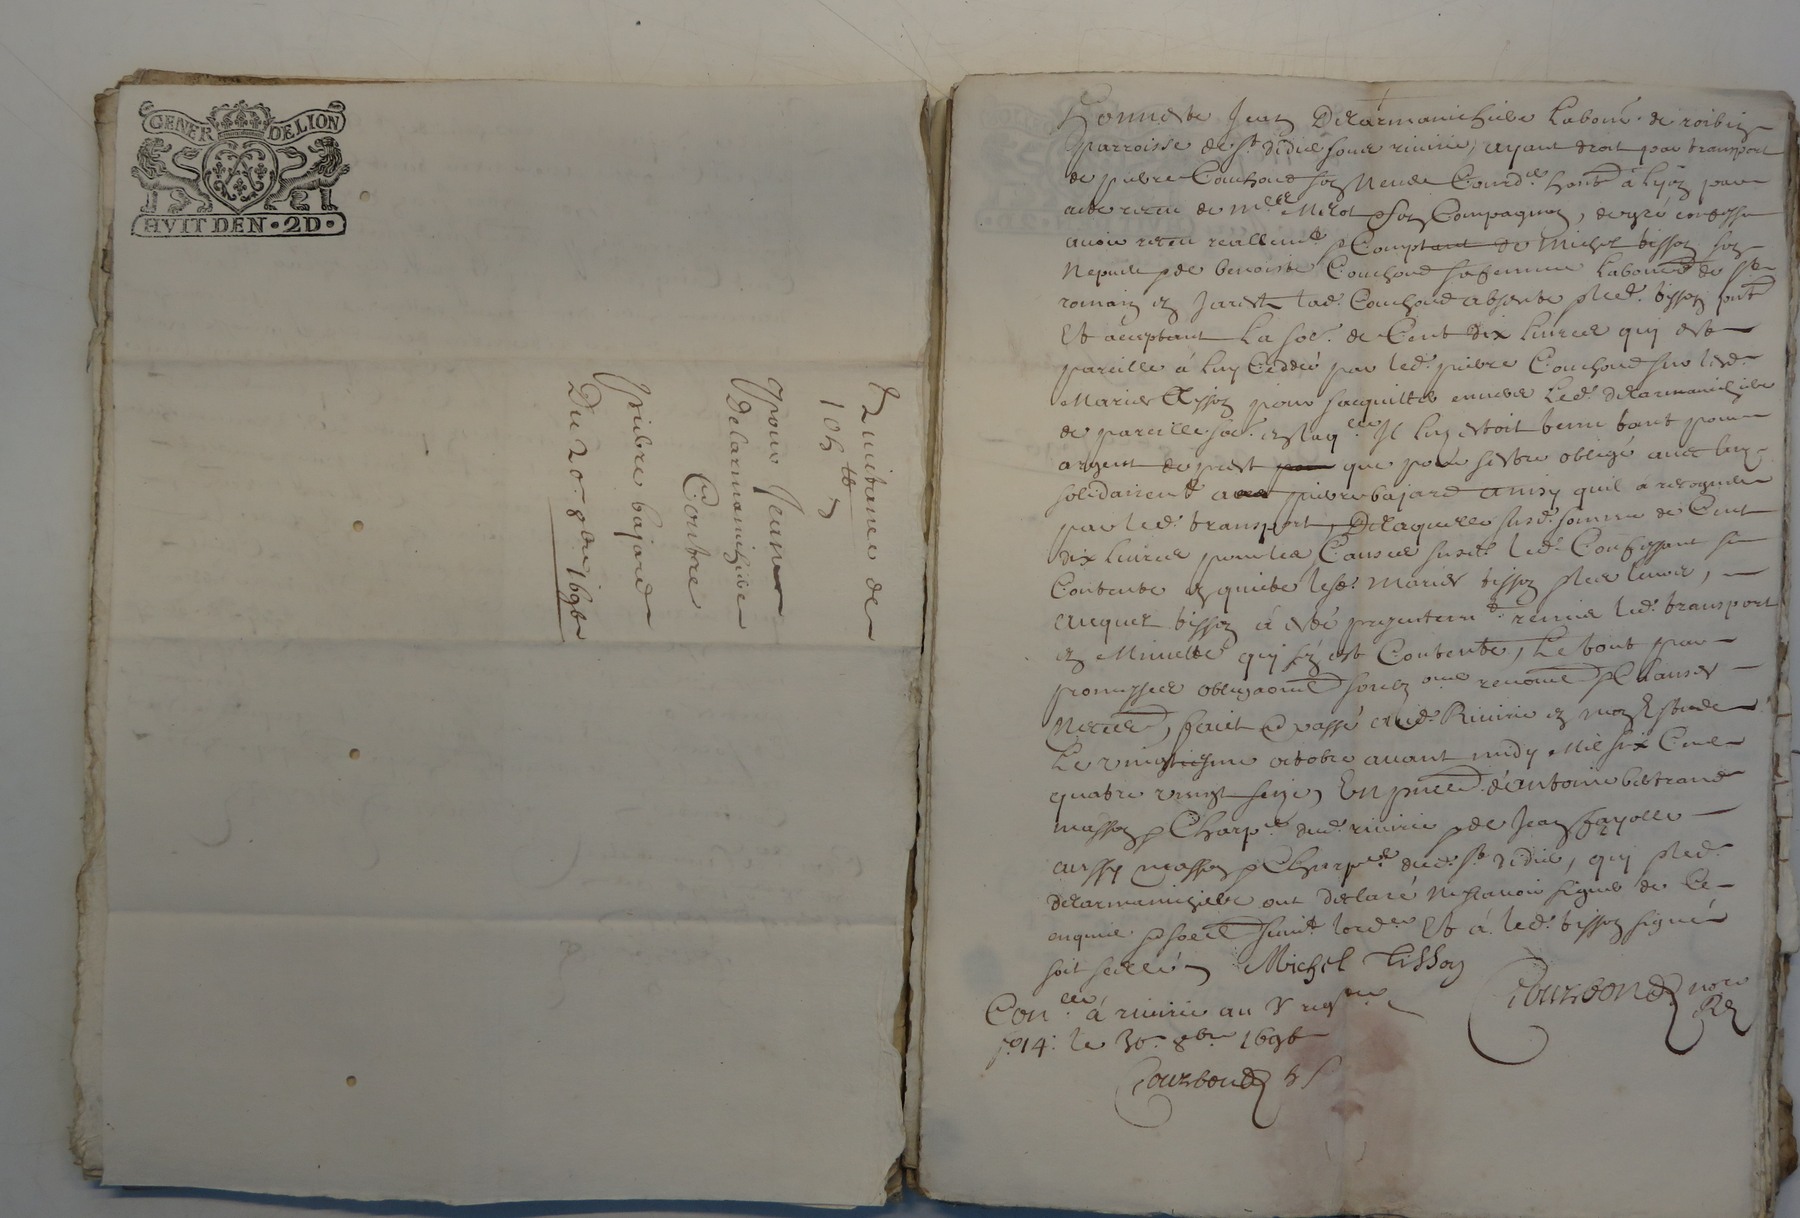 GENER DELION
HVIT DEN · 2D ·
Quictance de
105 tt
pour Jean
Delarmanichiere
Contre
pierre bajard
Du 20. 8bre 1696
Honneste Jean Delarmanichiere Labour. de
parroisse de st didier soub riuirie, ayant droit par transport
de pierre Couchoud son Neueu Courd.r habt. à Lyon par
acte receu de Me son Compagnon, de gré confesse
auoir receu reallemt. & Comptant de Michel tisson son
Nepueu & de benoiste Couchoud sa femme Labour. de st
romain en Jarest lad. Couchoud absente & led. tisson pnt.
Et acceptant La so. de Cent dix liures qui est
pareille à luy Ceddée par led. pierre Couchoud sur lesd.
Mariez tisson pour sacquitter enuers Led. Delarmanichiere
de pareille so. en laqlle Il luy estoit tenu tant pour
argent de prest que pour sestre obligé auec luy
solidairemt. a pierre bajard ainsy quil a recogneu
par led. transport, De laquelle susd. somme de Cent
dix liures pour les Causes susd. led. Confessant se
Contente & quitte lesd. Mariez tisson & les leurs,
auquel tisson à esté presentemt. remis led. transport
en Minutte qui sen est Contenté, Le tout par
promesses obligaons renons & Clauses
Neccres, fait & passé aud. Riuirie en mon Estude
Le vingtiesme octobre auant midy Mil six Cent
quatre vingt seize, En pnce d'antoine bertrand
masson & Charp.r dud. riuirie & de Jean fayolle
aussy masson & Charp.r dud. st didier, qui & led.
Delarmanichiere ont declaré ne scauoir signer de Ce
enquis & soe suiut. lord.ce Et à led. tisson signé
soit scellé Michel Tisson
Courbond nore
Rl
Conllé à riuirie au regre
fo 14. le 30. 8bre 1696
Courbond